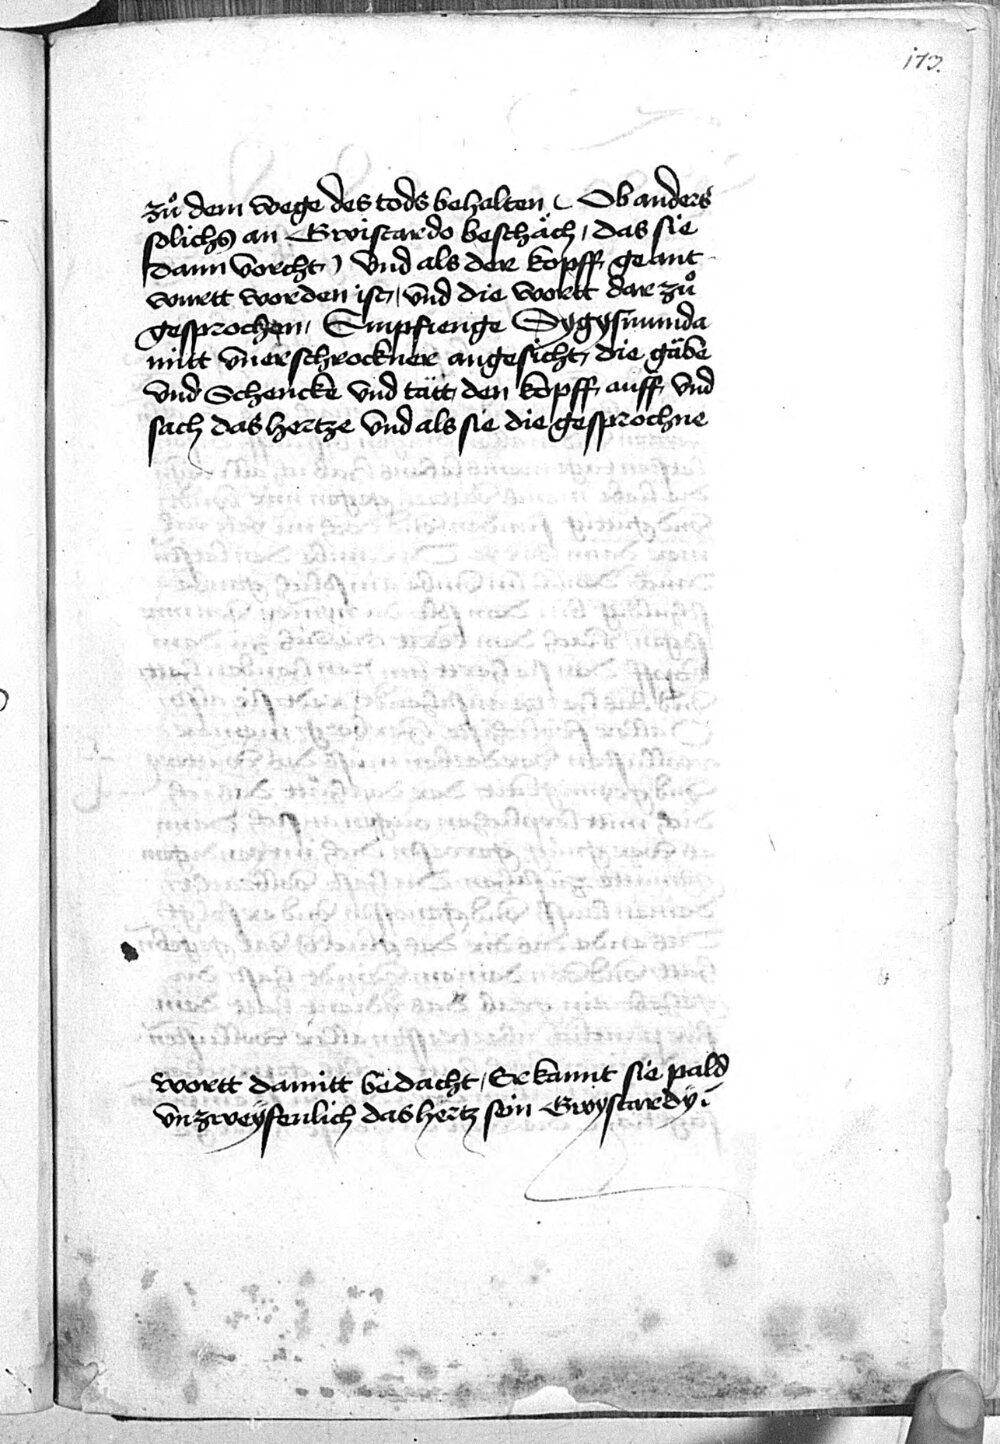 173.
zů dem wege des tods behalten ( Ob anders
solichs an Gwistardo beschäch / das sie
dann vorcht ) Vnd als der kopff geant
wurtt worden ist / vnd die wortt dar zů
gesprochen / Empfienge Sygysmunda
mitt vnerschrockner angesicht / die gäbe
vnd Schencke vnd tätt den kopff auff vnd
sach das hertze Vnd als sie die gesprochne
wortt damitt bedacht / Erkannt sie pald
vnzweyfenlich das hertz sein Gwystardy